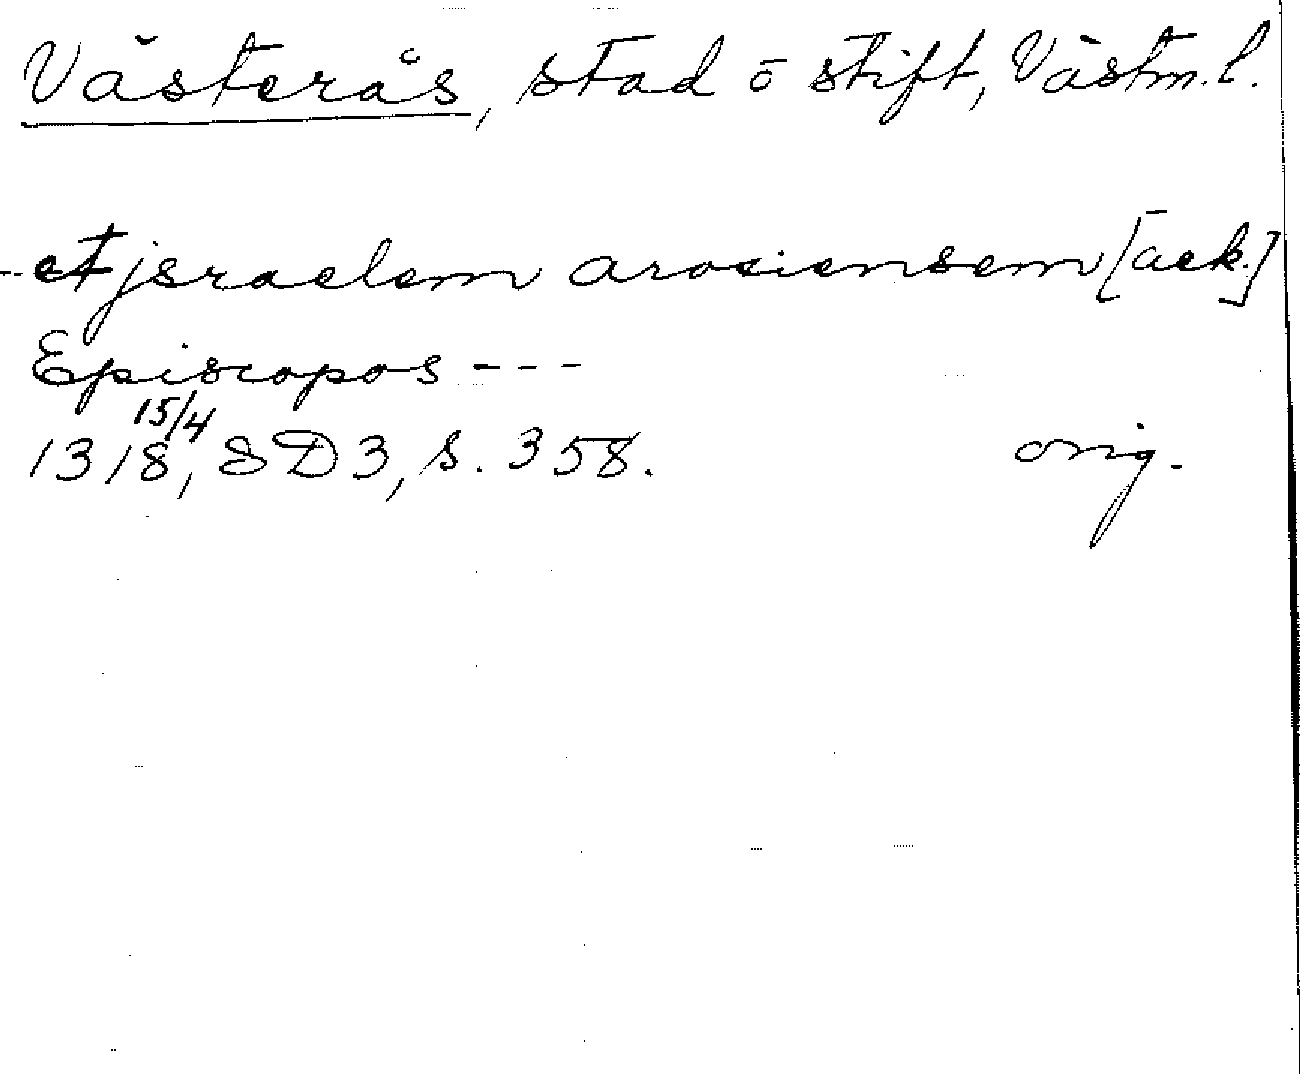 Västerås, stad o stift, Västm. l.
-- et jsraelem arosiensem [ack.]
Episcopos ---
15/4
1318, SD3, s. 358. orig.